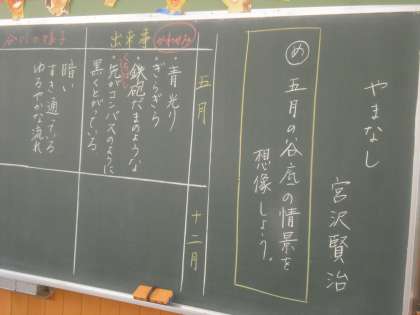 やまなし
宮沢賢治
め
五月の谷底の情景を
想像しよう。
五月
十二月
出来事
かわせみ
・青光り
・ぎらぎら
・鉄砲だまのような
・先がコンパスのように
黒くとがっている
の様子
暗い
すき通っている
ゆるやかな流れ